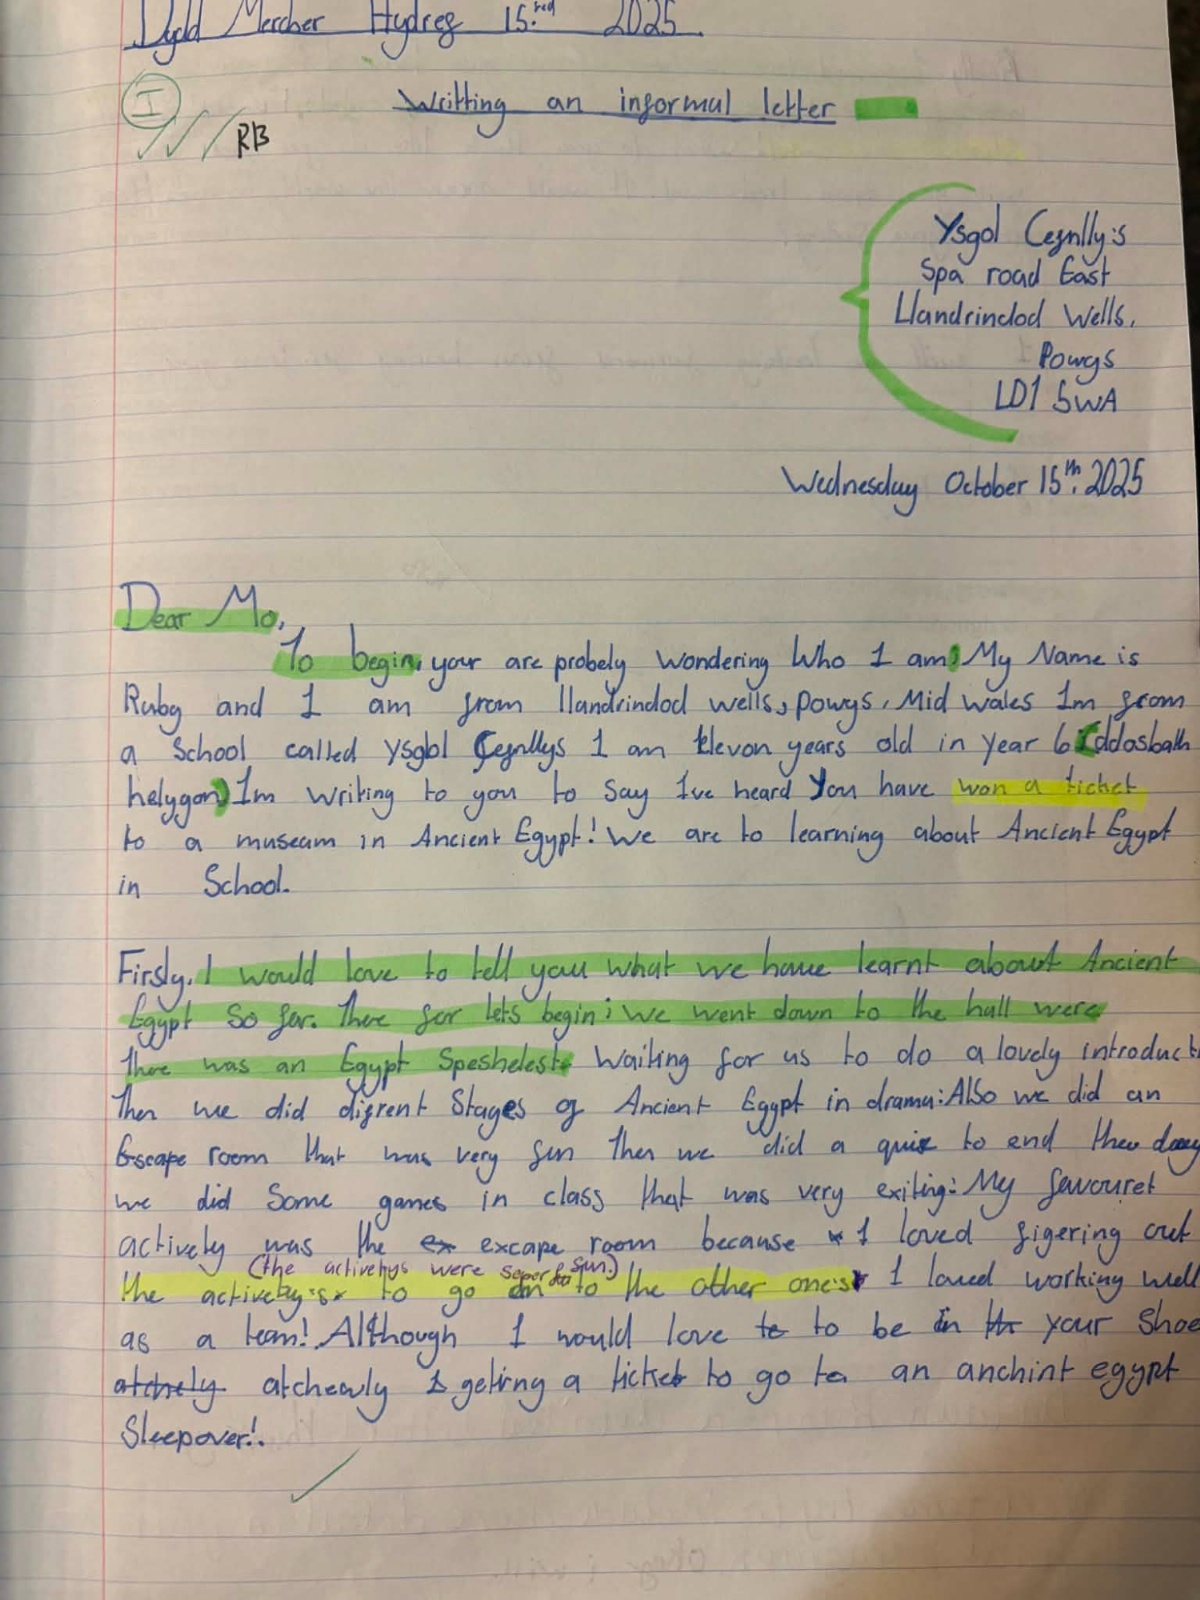 Dydd Mercher Hydref 15.fed 2025.
I
RB
Writting an informal letter
Ysgol Cefnllys
Spa road East
Llandrindod Wells,
Powys
LD1 5WA
Wednesday October 15th. 2025
Dear Mo,
To begin, your are probely wondering Who I am) My Name is
Ruby and I am from llandrindod wells, powys, Mid wales Im from
a School called ysgol Cefnllys I am Elevon years old in year 6 (ddosbath
helygon) Im writing to you to say Ive heard You have won a ticket
to a museam in Ancient Egypt! We are to learning about Ancient Egypt
in School.
Firsly, I would love to tell you what we have learnt about Ancient
Egypt So far. There for lets begin; we went down to the hall were
there was an Egypt Speshelest. Waiting for us to do a lovely introducti
Then we did difrent Stages of Ancient Egypt in drama: Also we did an
Escape room that was very fun Then we did a quiz to end the day
we did Some games in class that was very exiting: My favouret
actively was the ex excape room because I loved figering out
(the activetys were super fun.)
the activety's to go on to the other one's I loved working well
as a team! Although I would love to to be in your Shoe
atchely atchewly getirng a ticket to go to an anchint egypt
Sleepover!.